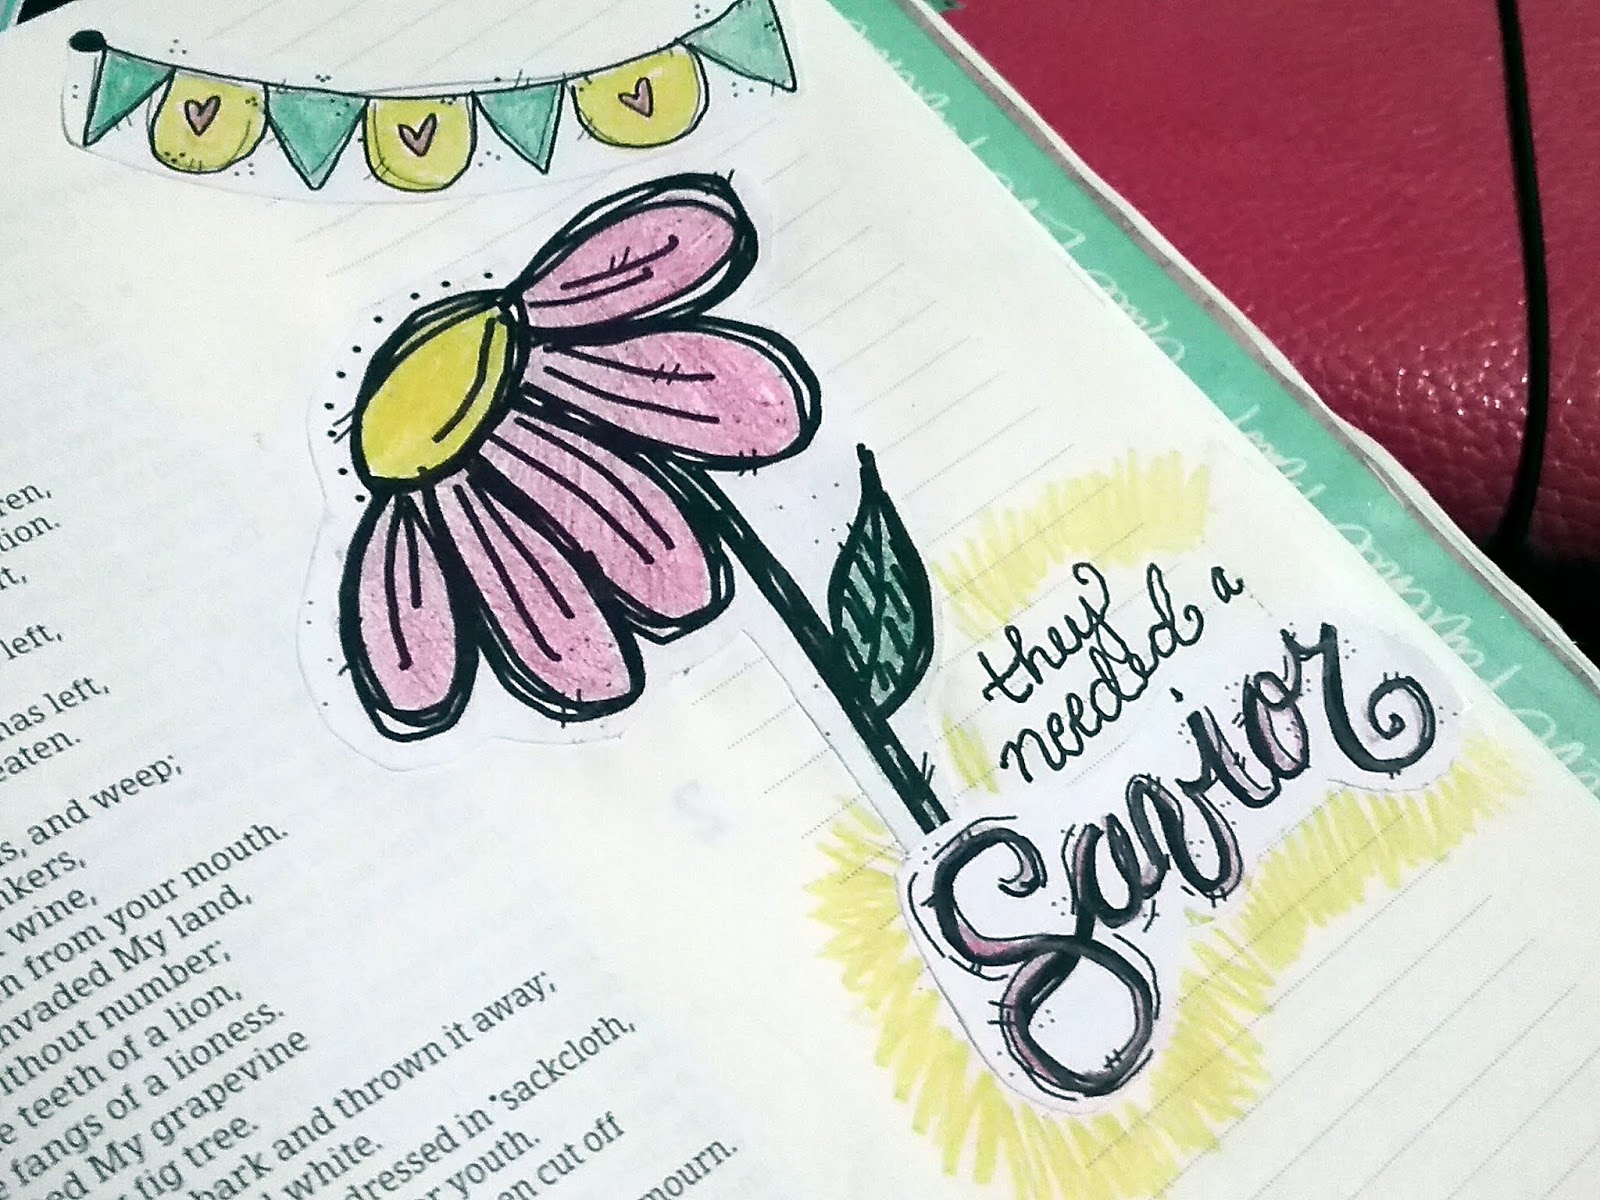 tion.
left,
has left,
eaten.
and weep;
wine,
from your mouth.
invaded My land,
without number;
teeth of a lion,
fangs of a lioness.
My grapevine
fig tree.
bark and thrown it away;
white.
dressed in *sackcloth,
youth.
cut off
mourn.
they
needed a
Savior